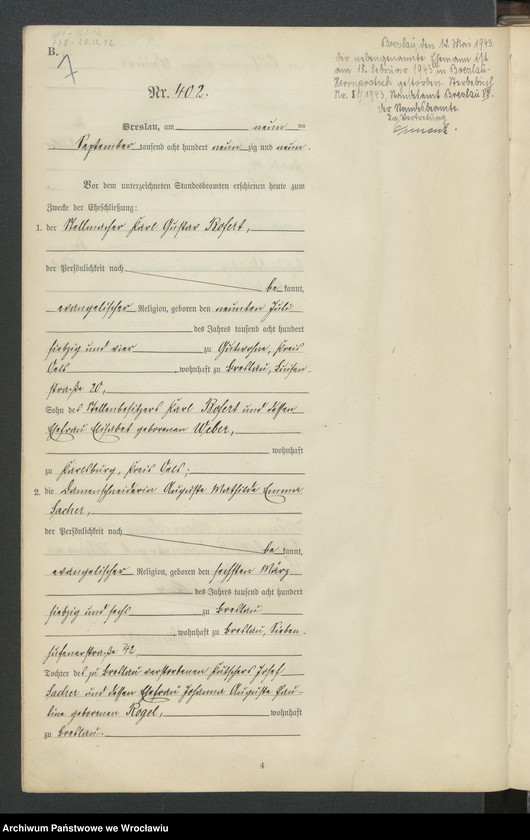 B.
7
Nr. 402.
Breslau, am neun ten
September tausend acht hundert neun zig und neun.
Vor dem unterzeichneten Standesbeamten erschienen heute zum
Zwecke der Eheschließung:
1. der Stellmacher Karl Gustav Rofert,
der Persönlichkeit nach
be kannt,
evangelischer Religion, geboren den neunten Juli
des Jahres tausend acht hundert
siebzig und vier zu Gutwohne, Kreis
Oels, wohnhaft zu Breslau,
straße 20,
Sohn des Stellenbesitzers Karl Rofert und dessen
Ehefrau Elisabet geborenen Weber,
wohnhaft
zu Karlsburg, Kreis Oels;
2. die Damenschneiderin Auguste Mathilde Emma
Sacher,
der Persönlichkeit nach
be kannt,
evangelischer Religion, geboren den sechsten März
des Jahres tausend acht hundert
siebzig und sechs zu Breslau
, wohnhaft zu Breslau, Sieben-
hufenerstraße 42
Tochter des zu Breslau verstorbenen Kutschers Josef
Sacher und dessen Ehefrau Johanna Auguste Pau-
line geborenen Kogel, wohnhaft
zu Breslau.
4
Breslau den 12. Mai 1943.
Der nebengenannte Ehemann ist
am 18. Februar 1943 in Breslau-
Herrnprotsch gestorben. Sterbebuch
Nr. /1943, Standesamt Breslau
Der Standesbeamte
In Vertretung
Archiwum Państwowe we Wrocławiu